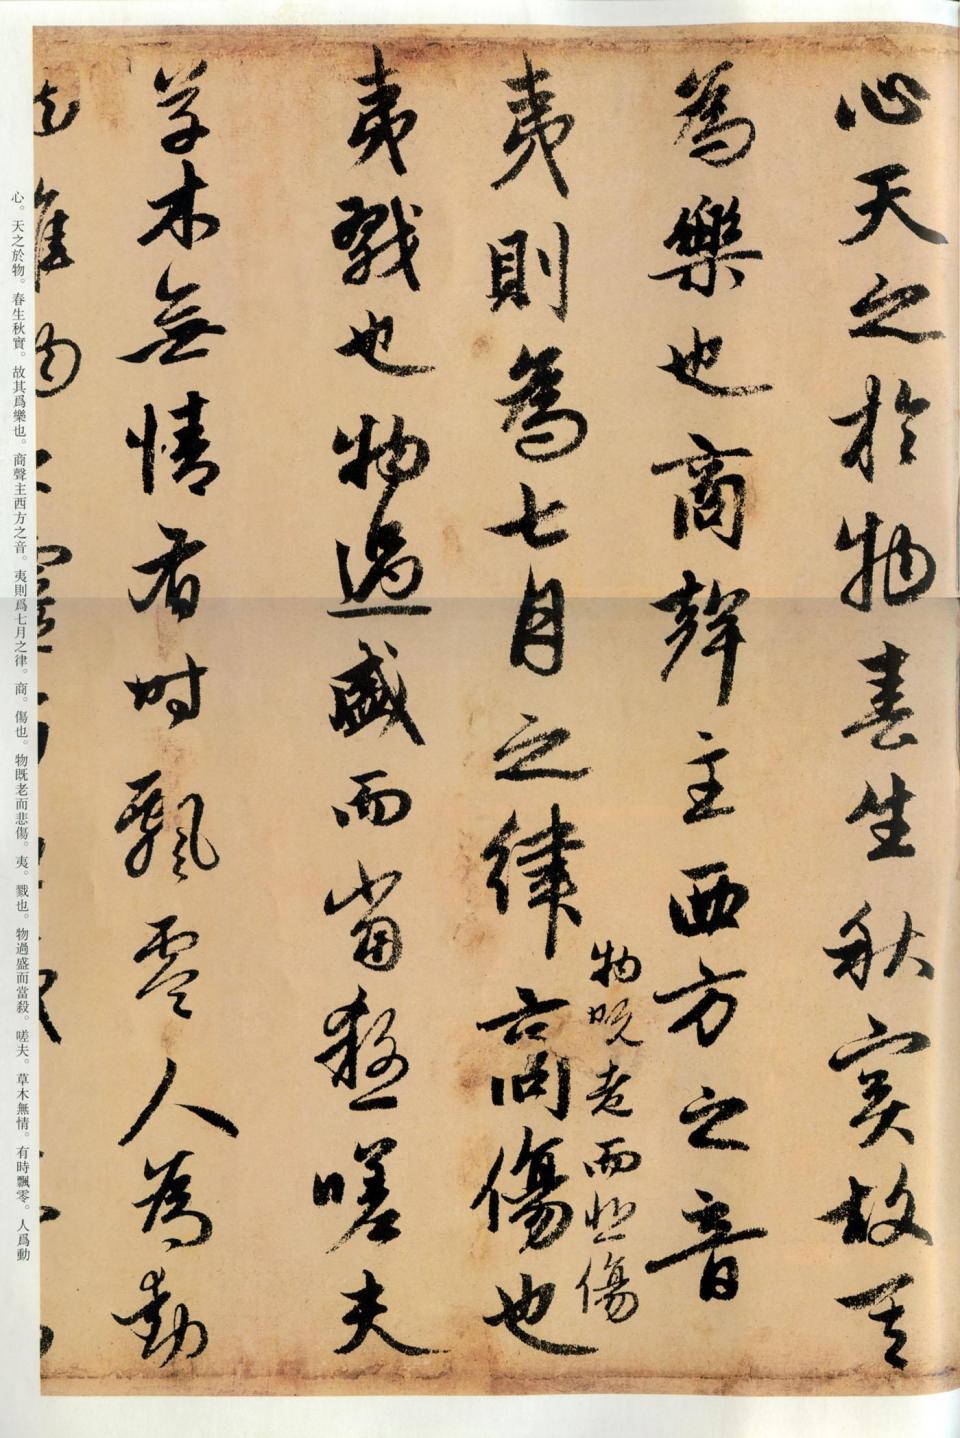 心天之於物春生秋實故其
為樂也商聲主西方之音
物既老而悲傷
夷則為七月之律商傷也
夷戮也物過盛而當殺嗟夫
草木無情有時飄零人為動
物惟物之靈
心。天之於物。春生秋實。故其爲樂也。商聲主西方之音。夷則爲七月之律。商。傷也。物既老而悲傷。夷。戮也。物過盛而當殺。嗟夫。草木無情。有時飄零。人爲動